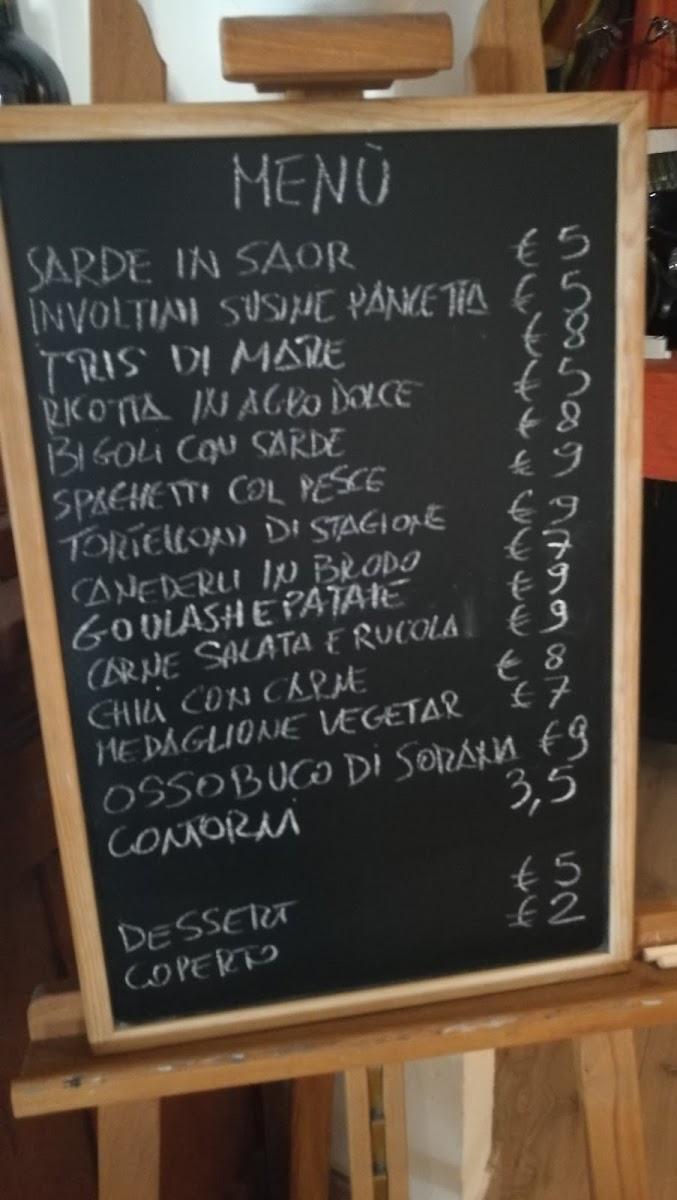 MENÙ
SARDE IN SAOR € 5
INVOLTINI SUSINE PANCETTA € 5
TRIS DI MARE € 8
RICOTTA IN AGRODOLCE € 5
BIGOLI CON SARDE € 8
SPAGHETTI COL PESCE € 9
TORTELLONI DI STAGIONE € 9
CANEDERLI IN BRODO € 7
GOULASH E PATATE € 9
CARNE SALATA E RUCOLA € 9
CHILI CON CARNE € 8
MEDAGLIONE VEGETAR € 7
OSSOBUCO DI SORANA € 9
CONTORNI 3,5
DESSERT € 5
COPERTO € 2